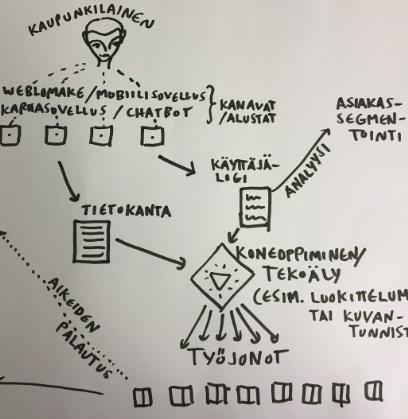 KAUPUNKILAINEN
WEBLOMAKE / MOBIILISOVELLUS
KARTTASOVELLUS / CHATBOT
KANAVAT
/ALUSTAT
ASIAKAS-
SEGMEN-
TOINTI
KÄYTTÄJÄ-
LOGI
ANALYYSI
TIETOKANTA
KONEOPPIMINEN/
TEKOÄLY
(ESIM. LUOKITTELUM
TAI KUVAN-
TUNNIST
AIKEIDEN
PALAUTUS
TYÖJONOT